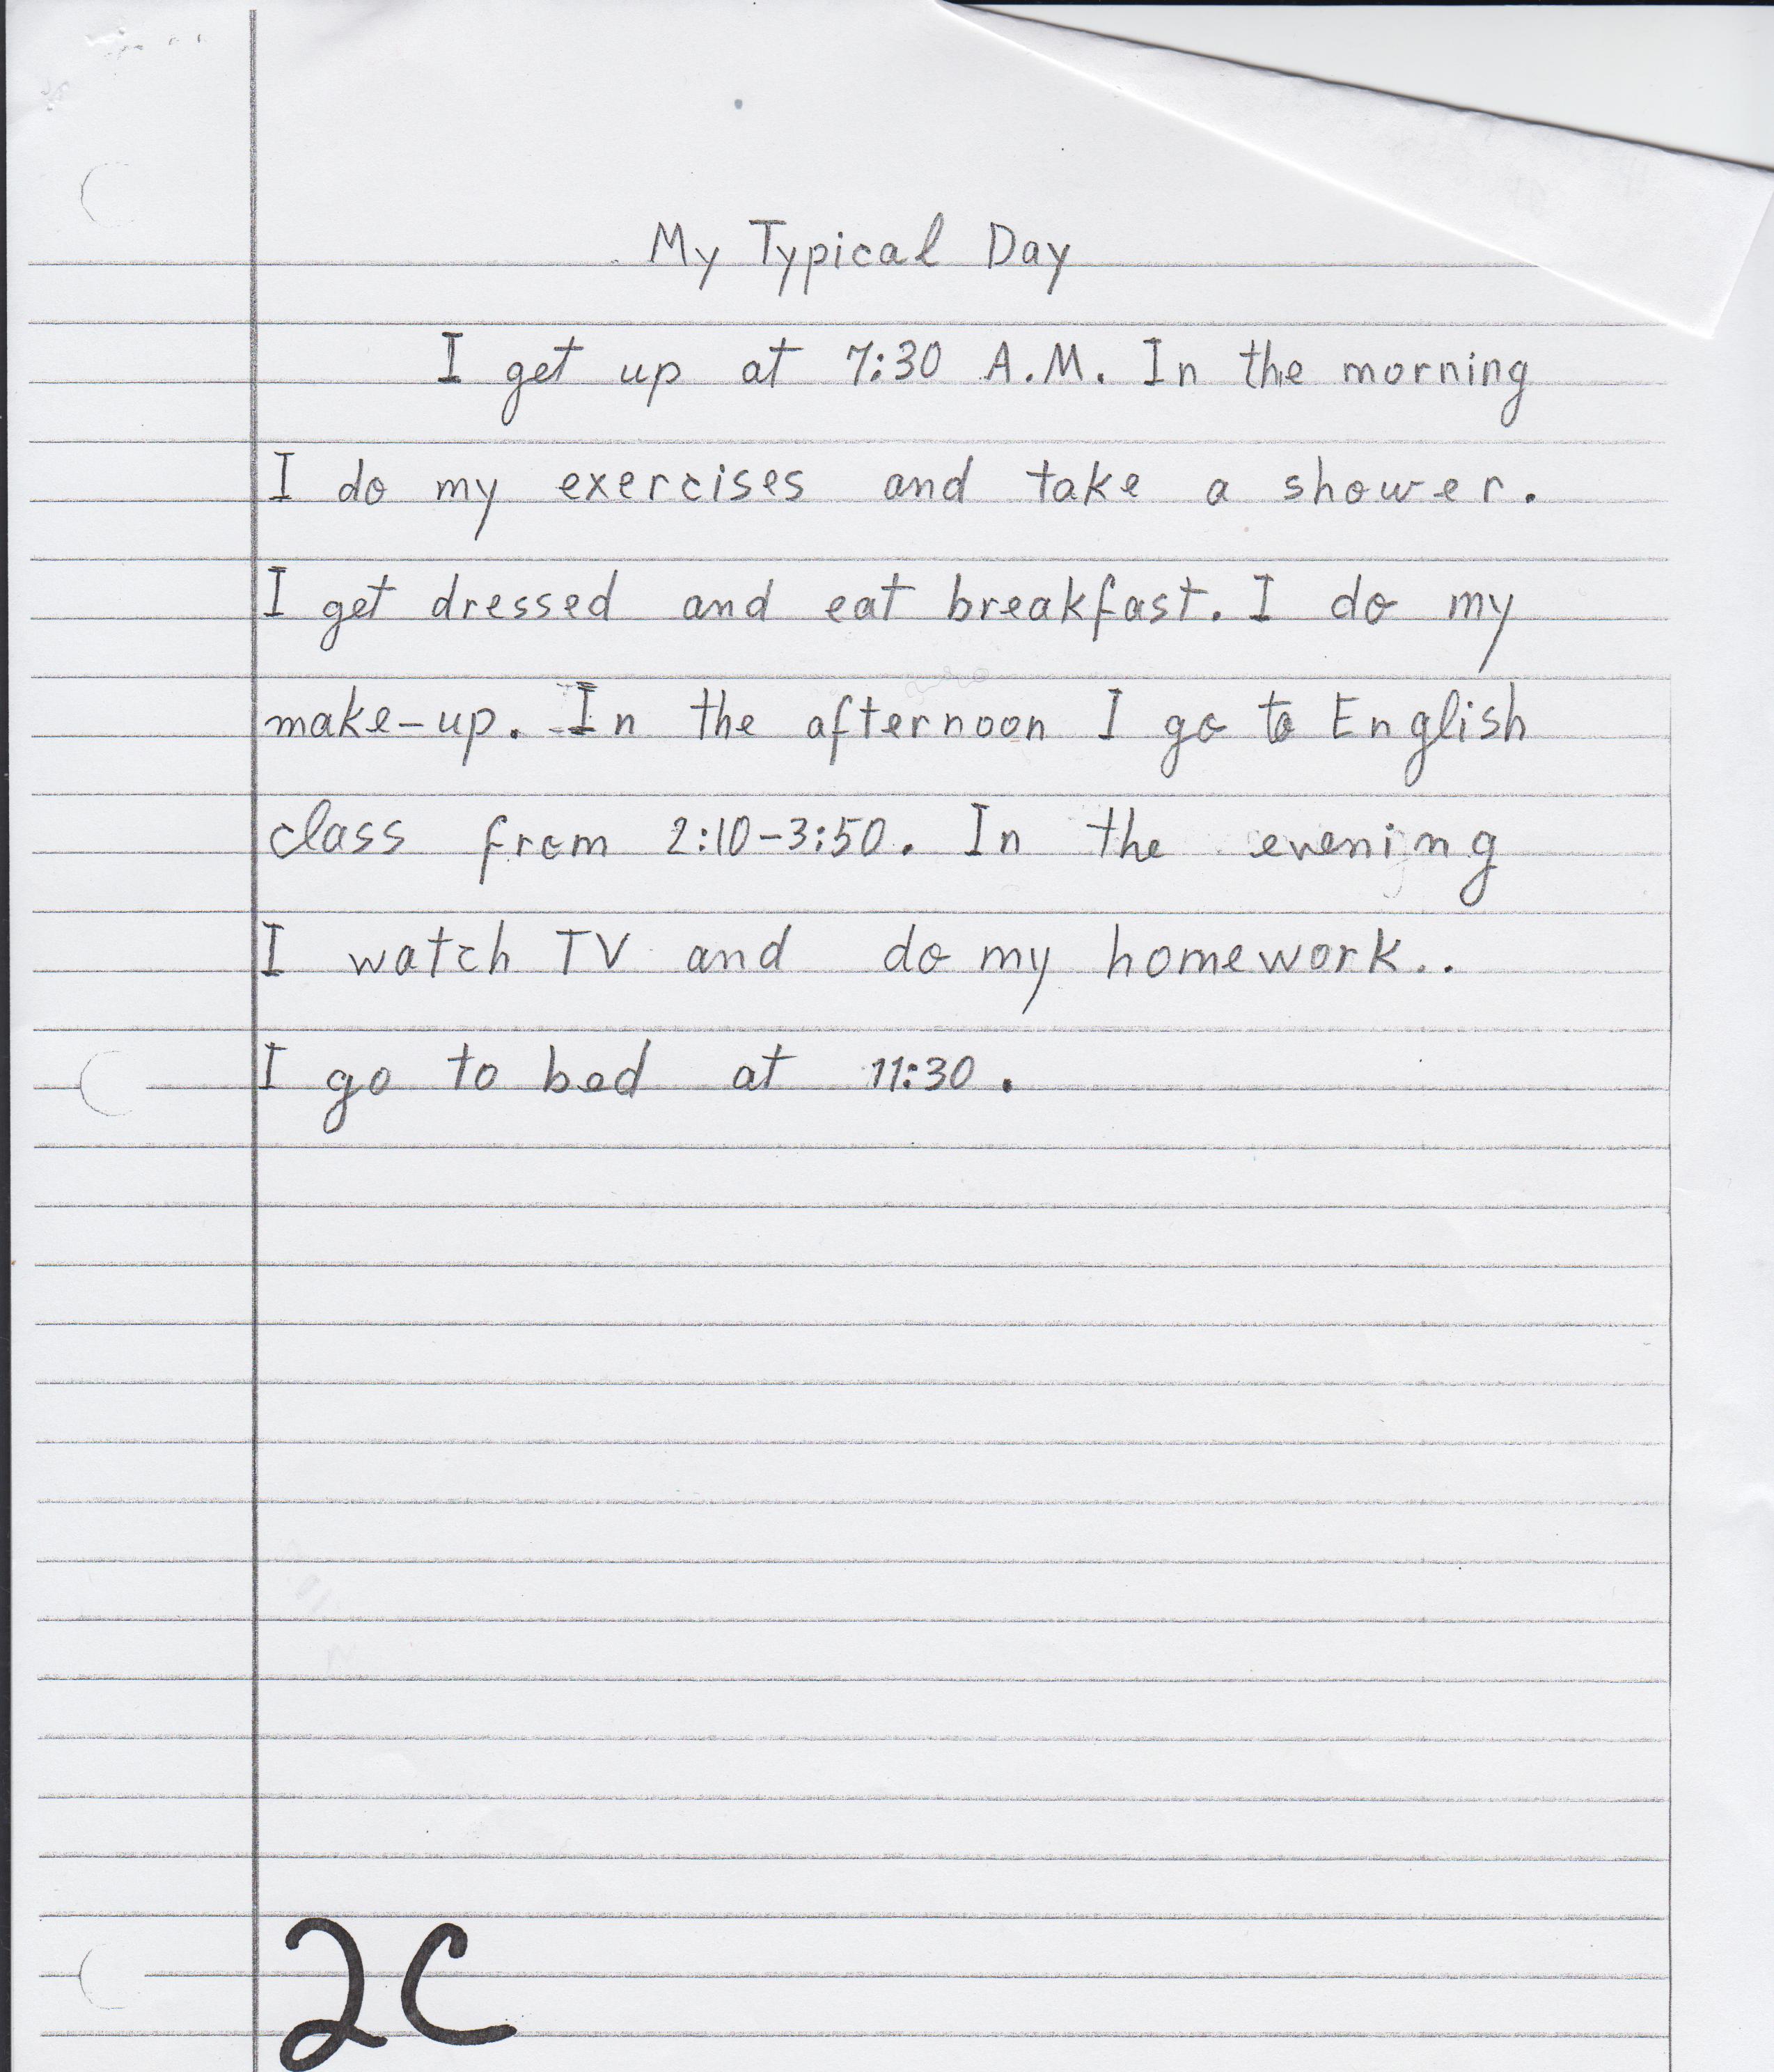 My Typical Day
I get up at 7:30 A.M. In the morning
I do my exercises and take a shower.
I get dressed and eat breakfast. I do my
make-up. In the afternoon I go to English
class from 2:10-3:50. In the evening
I watch TV and do my homework..
I go to bed at 11:30.
2C